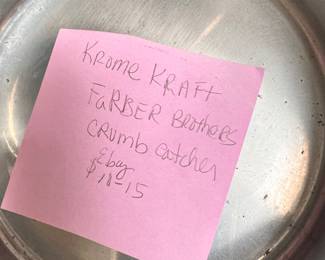 Krome KRAft
FaRBER BROthERS
CRUmb catcher
Ebay
$10-15